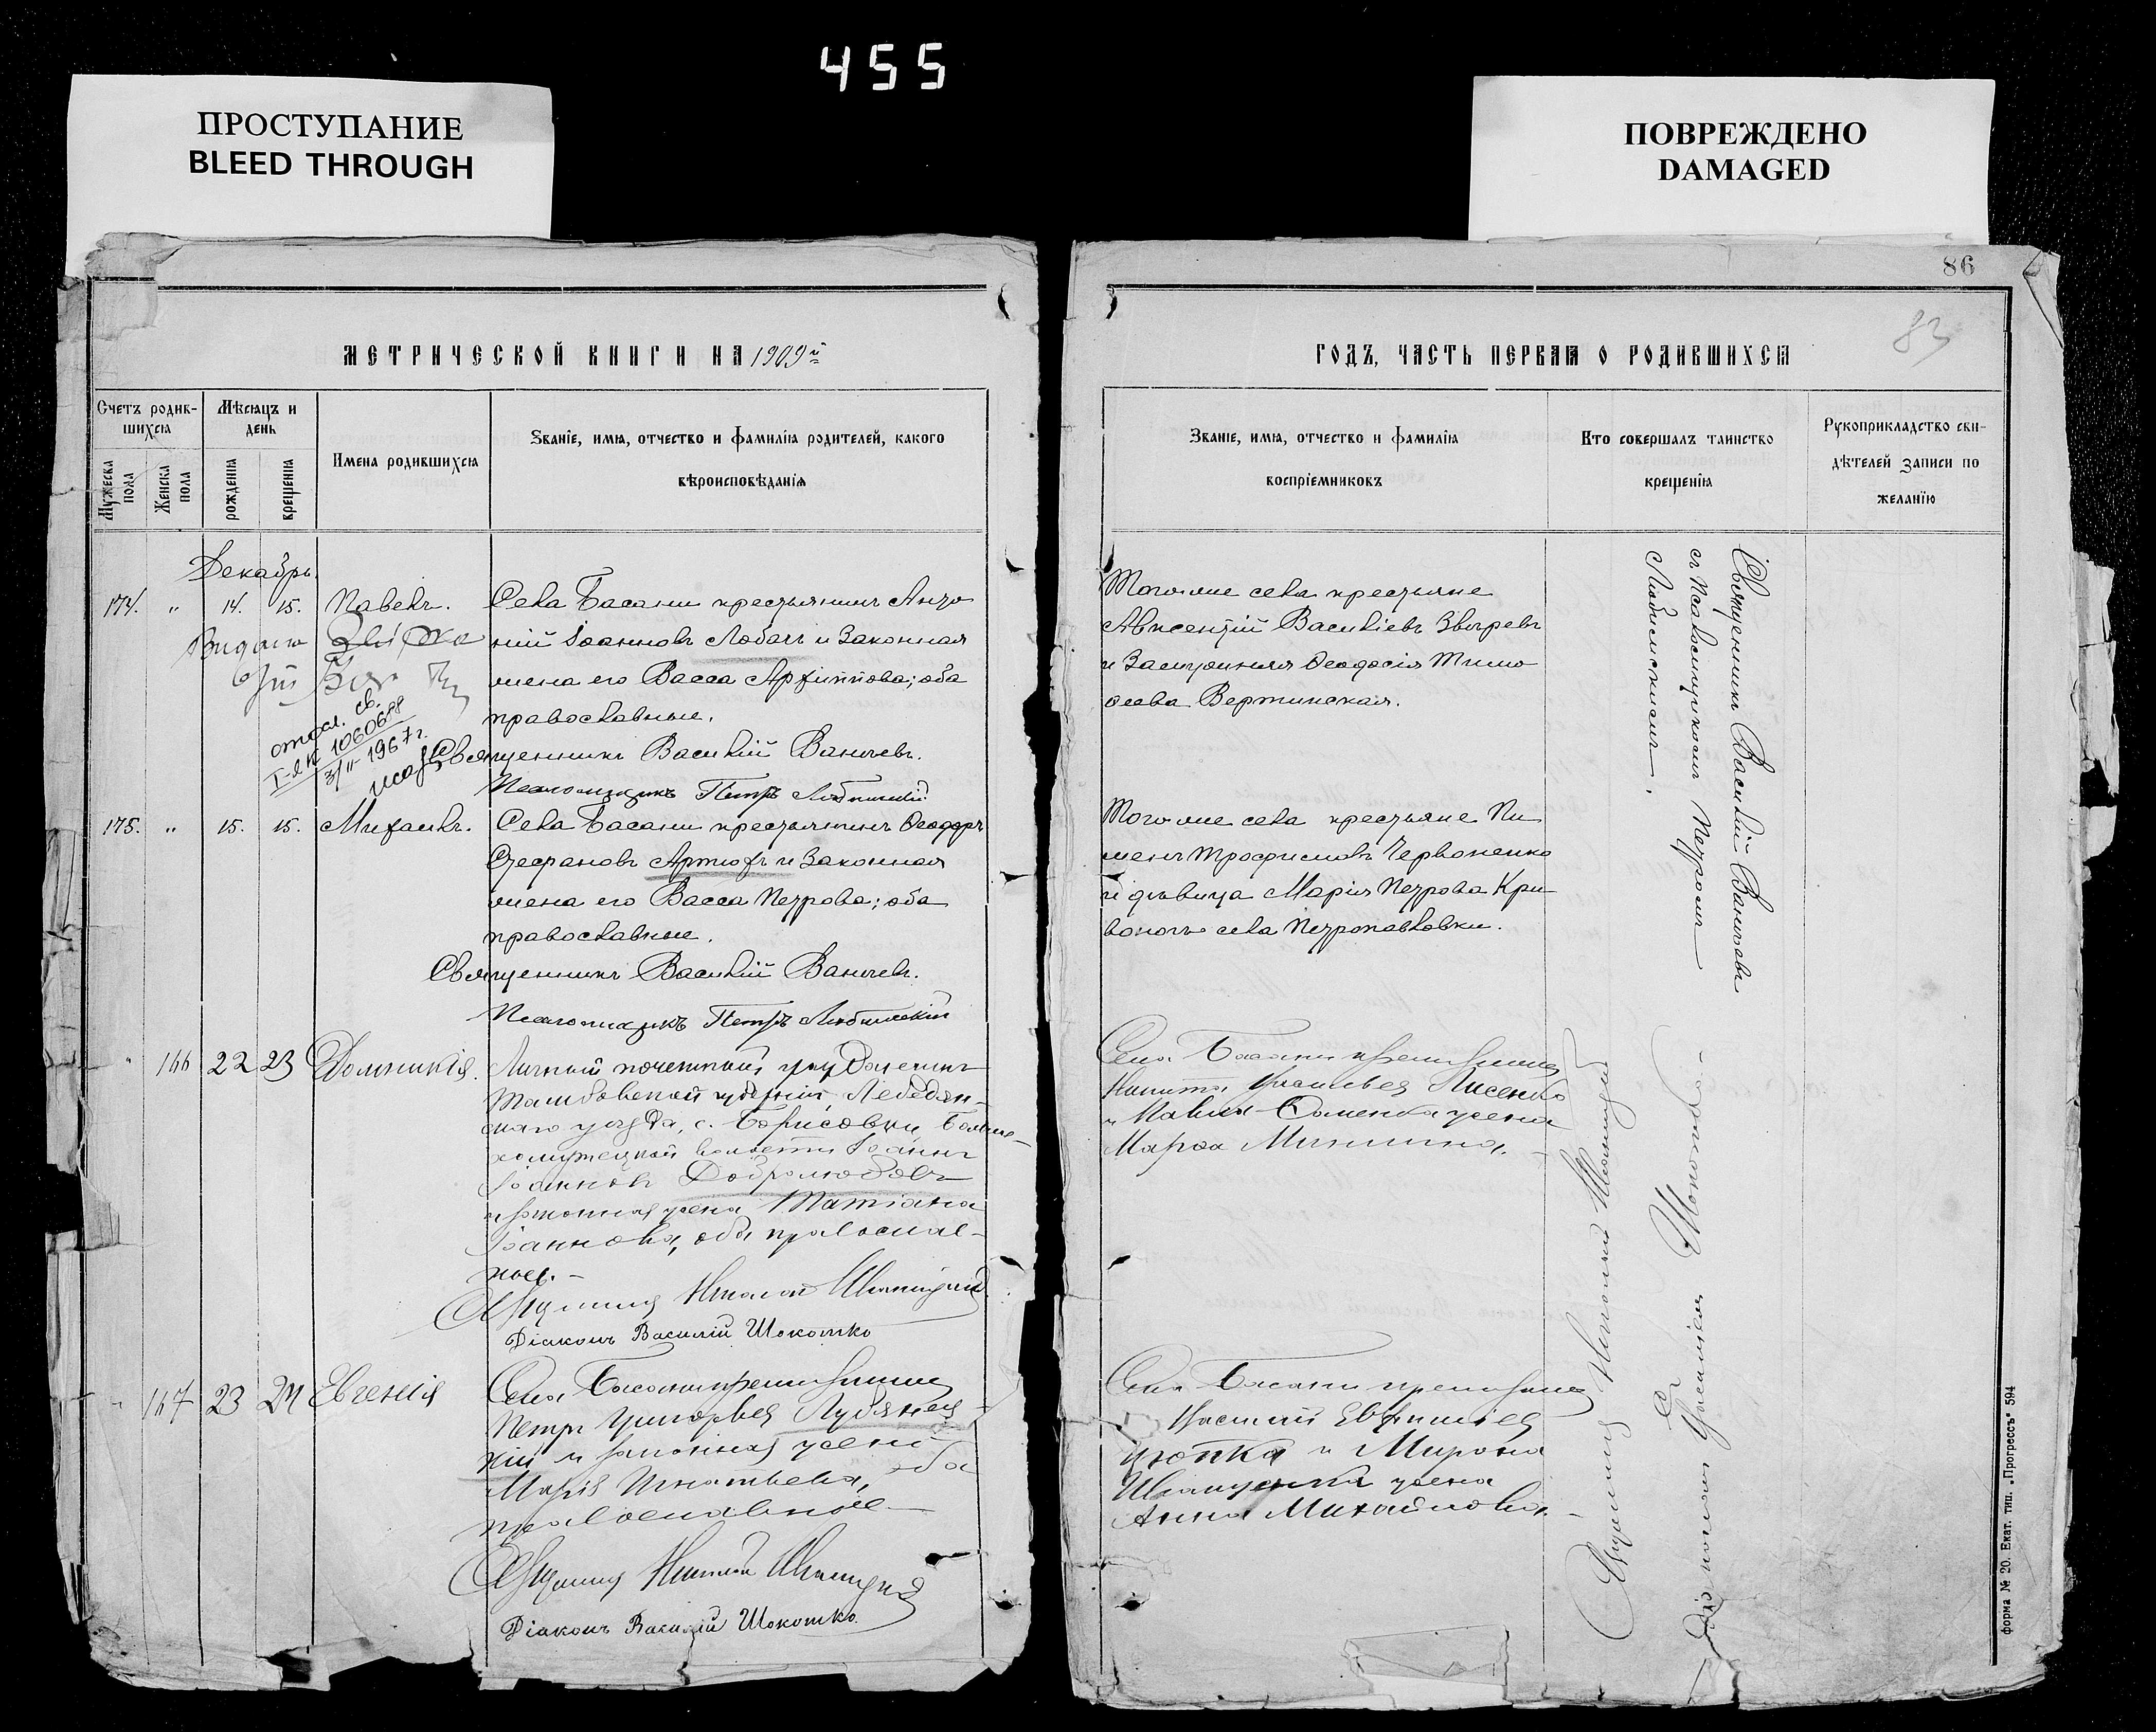 455
ПРОСТУПАНИЕ
BLEED THROUGH
ПОВРЕЖДЕНО
DAMAGED
86
83
МЕТРИЧЕСКОЙ КНИГИ НА 1909й
ГОДЪ, ЧАСТЬ ПЕРВАЯ О РОДИВШИХСЯ
Счетъ родив-
шихся
Мужеска пола
Женска пола
Мѣсяцъ и
день
рожденія
крещенія
Имена родившихся
Званіе, имя, отчество и фамилія родителей, какого
вѣроисповѣданія
Званіе, имя, отчество и фамилія
воспріемниковъ
Кто совершалъ таинство
крещенія
Рукоприкладство сви-
дѣтелей записи по
желанію
Декабрь.
174. " 14. 15. Павелъ.
Села Басани крестьянинъ Анто
ній Іоанновъ Лобачъ и законная
жена его Васса Архиппова; оба
православные.
Священникъ Василій Ваничевъ.
Псаломщикъ Петръ Любимскій
отосл. св.
1060688
1967 г.
Того же села крестьяне
Авксентій Василіевъ Звѣревъ
и Замужняя Ѳеодосія Тимо
ѳеева Вертинская.
Священникъ Василій Ваничевъ
съ Псаломщикомъ Петромъ
Любимскимъ.
175. " 15. 15. Михаилъ.
Села Басани крестьянинъ Ѳеодоръ
Стефановъ Артюхъ и законная
жена его Васса Петрова; оба
православные.
Священникъ Василій Ваничевъ.
Псаломщикъ Петръ Любимскій
Того же села крестьяне Пи
менъ Трофимовъ Червоненко
и дѣвица Марія Петрова Кри-
воносъ села Петропавловки.
" 166 22 23 Домникія.
Личный почетный гражданинъ
Тамбовской губерніи, Лебедян-
скаго уѣзда, с. Борисовки,
волости Іоаннъ
Іоанновъ Добролюбовъ
и законная жена Татіана
Іоаннова, оба православ-
ные. –
Священникъ Николай
Діаконъ Василій Шокотко
Села Басани крестьянинъ
Никита Лисенко
и жена
Марѳа
" 167 23 24 Евгенія
Села Басани крестьянинъ
Петръ Григорьевъ
кій и законная жена
Марія Игнатьева, оба
православные
Священникъ Николай
Діаконъ Василій Шокотко.
Села Басани крестьянинъ
Василій Евфиміевъ
и Мирона
жена
Анна Михайлова. –
Священникъ Николай
Діакономъ Василіемъ Шокоткою –
форма № 20. Екат. тип. „Прогрессъ" 594